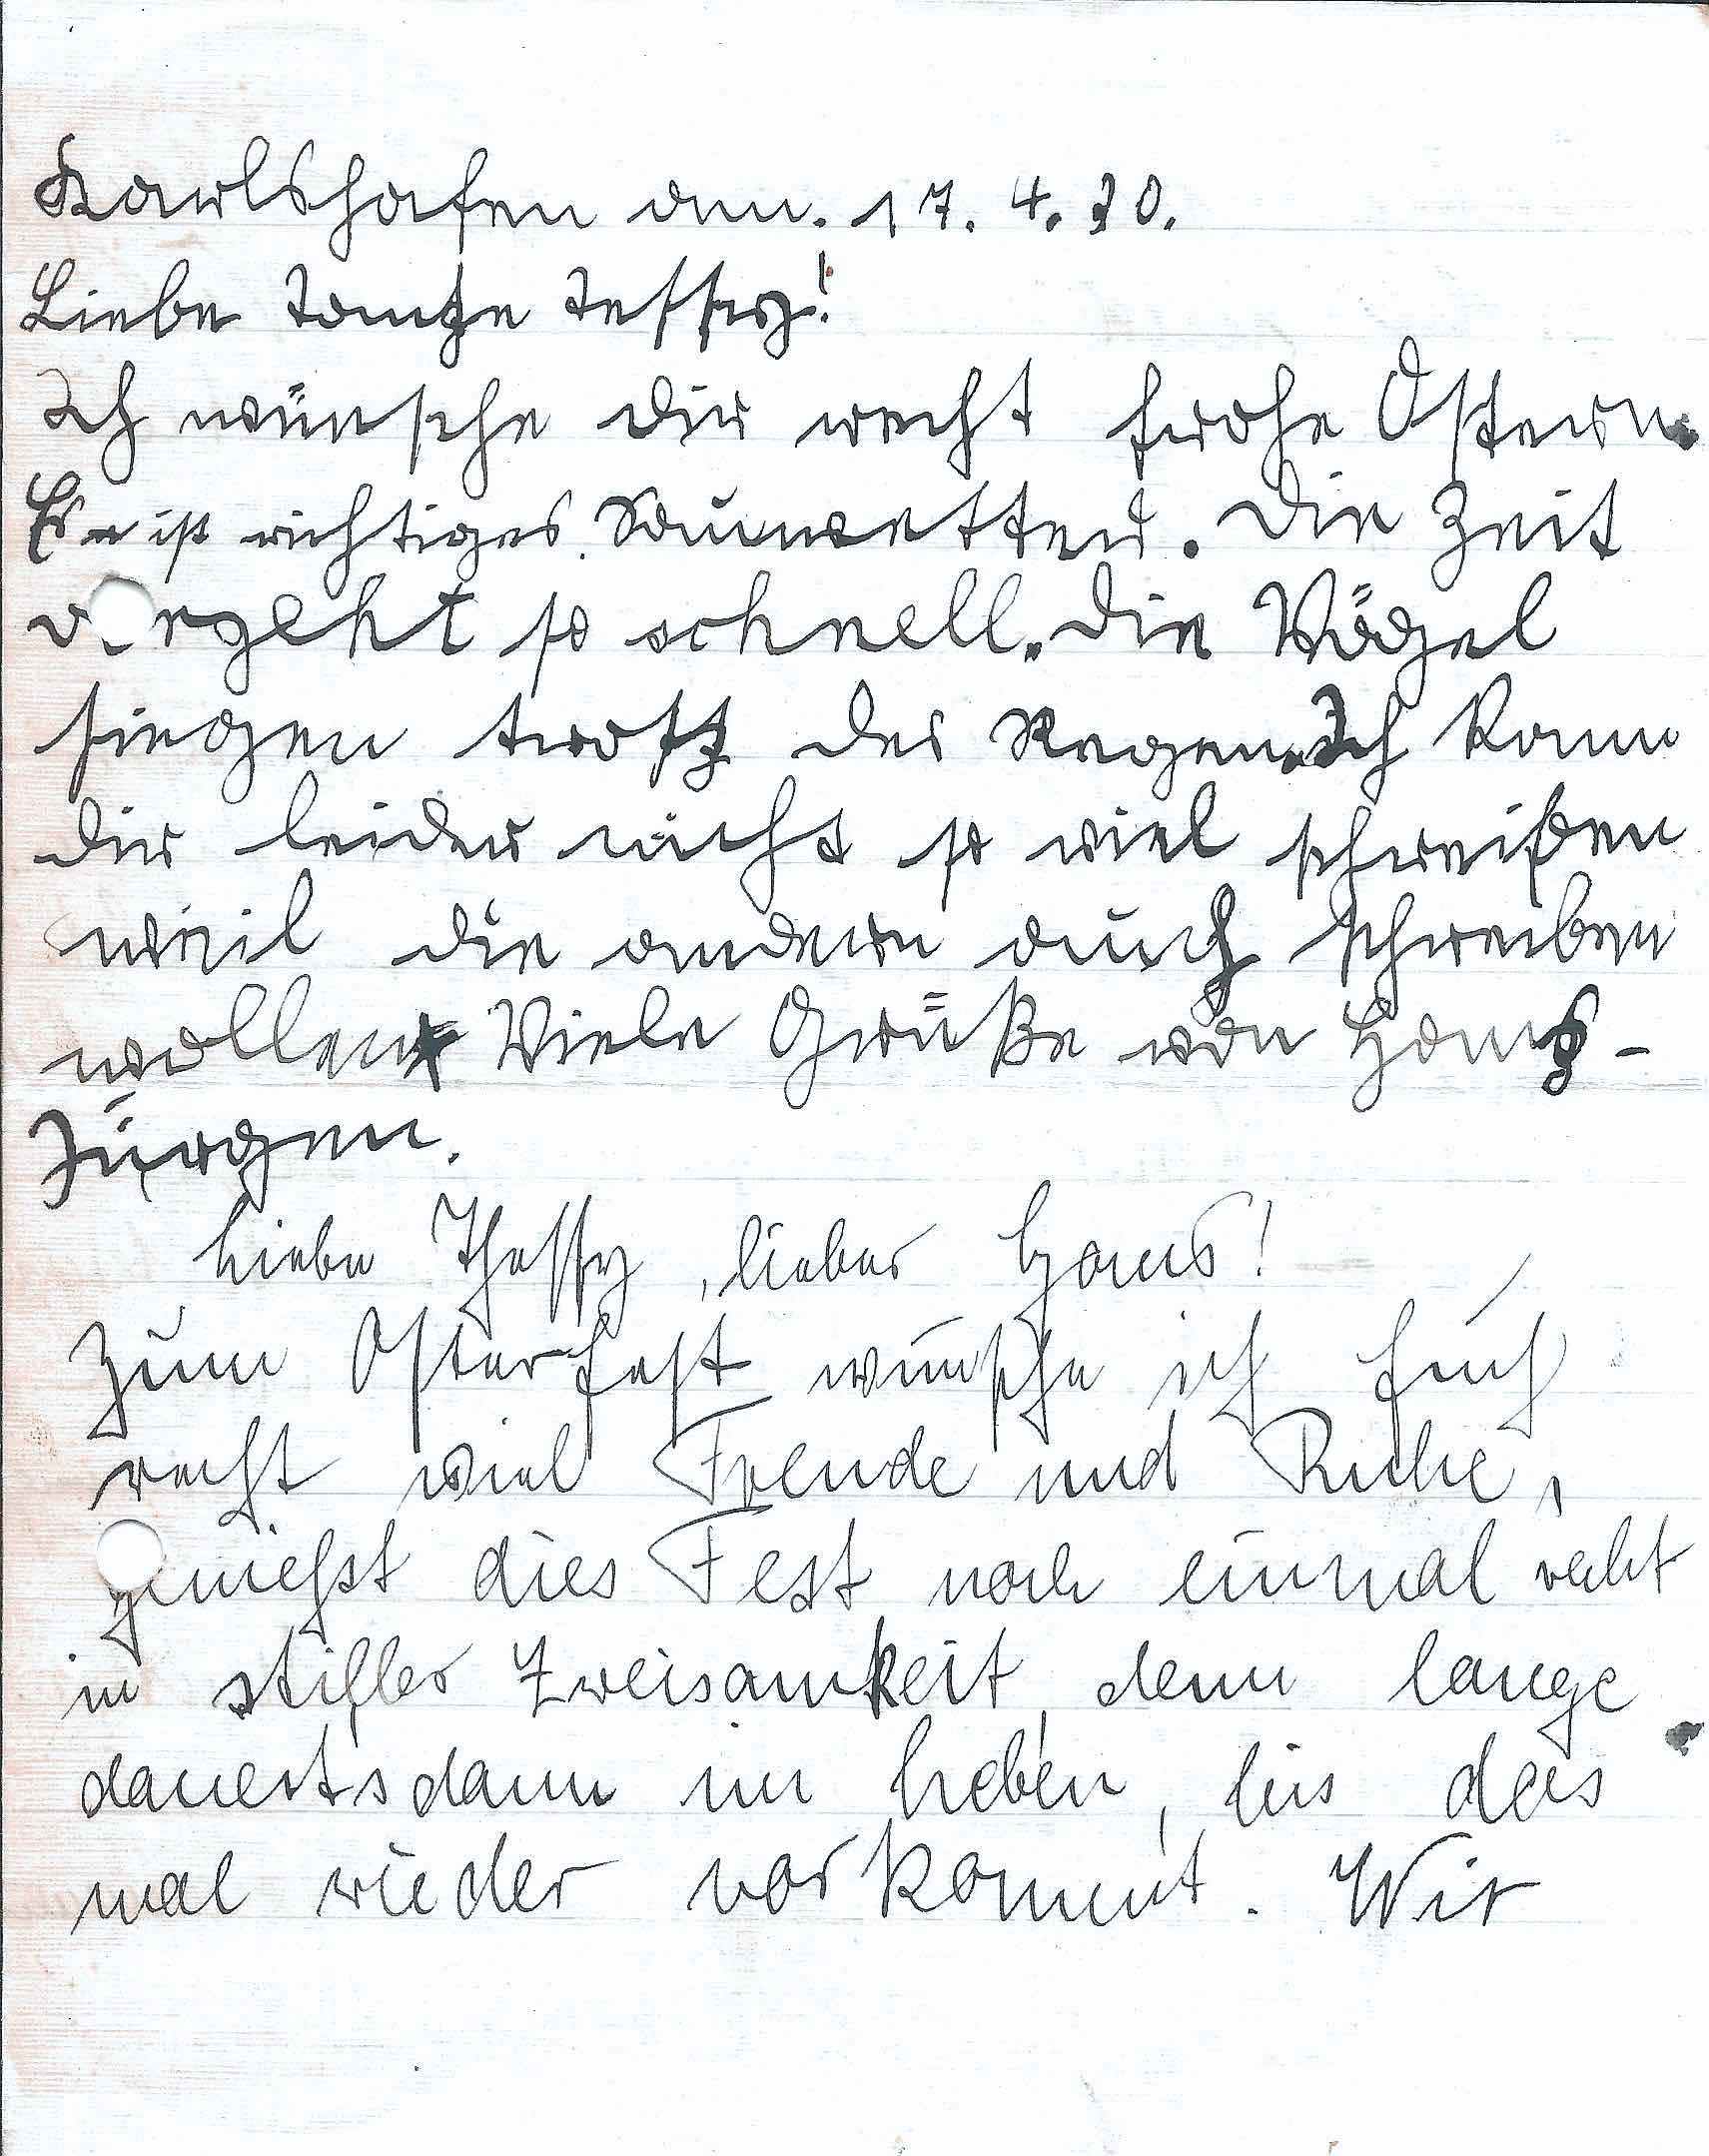 Karlshafen den. 17. 4. 30.
Liebe Tante Tessy!
Ich wünsche dir recht frohe Ostern.
Es ist richtiges Sauwetter. Die Zeit
vergeht so schnell. Die Vögel
siegen trotz des Regen. Ich kann
dir leider nicht so viel schreiben
weil die andern auch schreiben
wollen Viele Grüße von Hans-
Jürgen.
Liebe Thessy, lieber Hans!
Zum Osterfest wünsche ich Euch
recht viel Freude und Ruhe,
genießt dies Fest noch einmal recht
in stiller Zweisamkeit, denn lange
dauerts dann im Leben, bis das
mal wieder vorkommt. Wir